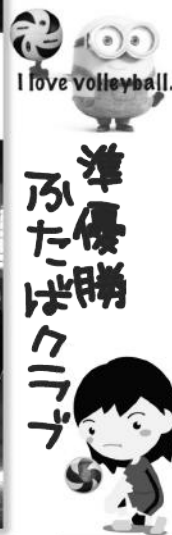 I love volleyball.
準優勝
ふたばクラブ